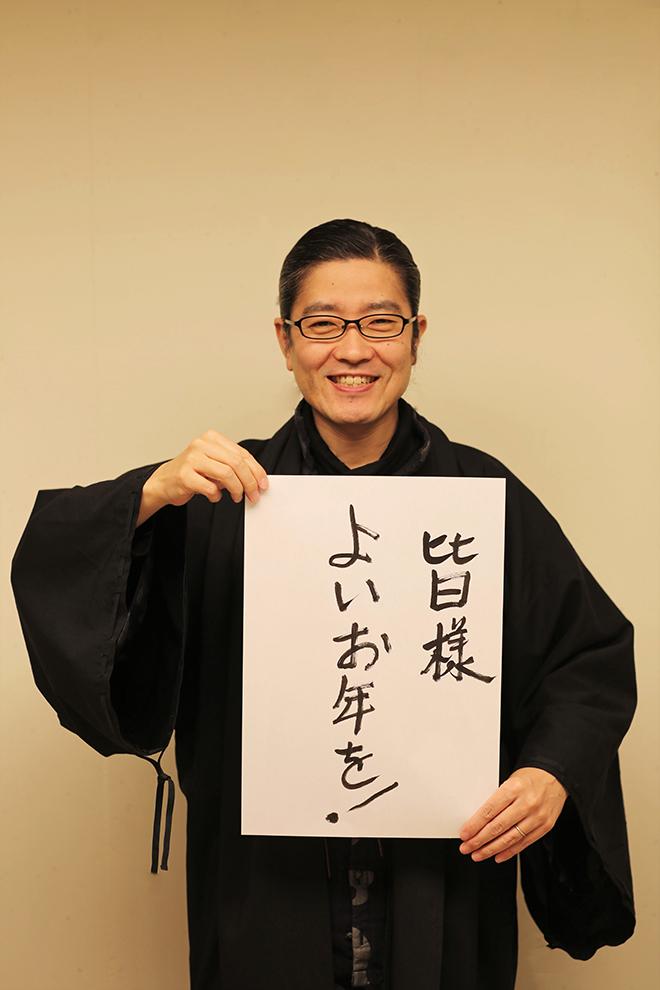 皆様
よいお年を!